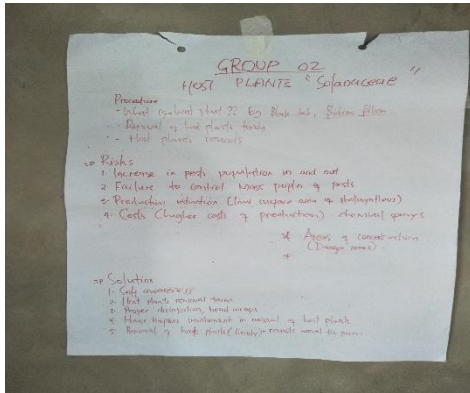 GROUP 02
HOST PLANTS "Solanaceae"
Procedure
- What plant ?? Eg Black
- Removal of host plants timely
- Host plants removals
⇒ Risks
1. Increase in pests population in and out
2. Failure to control pests
3. Production reduction (low surface area of photosynthesis)
4. Costs (higher costs of production) - chemical sprays
* Areas of concentration
*
⇒ Solution
1. awareness
2. Host plants removal teams
3. Proper disinfection,
4. involvement in removal of host plants
5. Removal of host plants (timely)